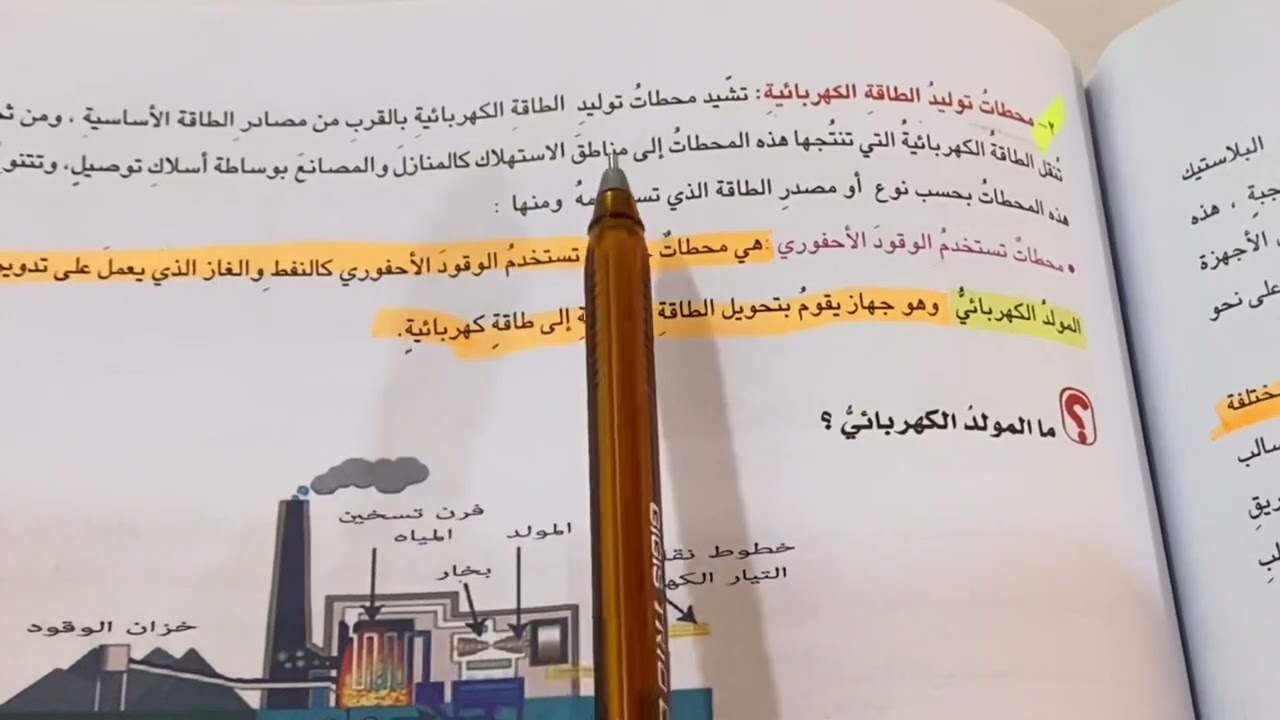 ٢- محطاتُ توليدُ الطاقةِ الكهربائيةِ: تشّيد محطاتُ توليدِ الطاقةِ الكهربائيةِ بالقربِ من مصادرِ الطاقة الأساسيةِ ، ومن
تُنقل الطاقةُ الكهربائيةُ التي تنتُجها هذه المحطاتُ إلى مناطقَ الاستهلاك كالمنازلَ والمصانعَ بوساطة أسلاكِ توصيلٍ،
هذه المحطاتُ بحسب نوع أو مصدرِ الطاقة الذي ومنها :
• محطاتٌ تستخدمُ الوقودَ الأحفوري :هي محطاتٌ تستخدمُ الوقودَ الأحفوري كالنفطِ والغاز الذي يعملَ على
المولدُ الكهربائيُّ وهو جهاز يقومُ بتحويل الطاقةِ إلى طاقةٍ كهربائيةٍ.
؟ ما المولدُ الكهربائيُّ ؟
فرن تسخين
المياه
المولد
بخار
خطوط
التيار
خزان الوقود
البلاستيك
جبةٍ ، هذه
الأجهزة
على نحو
سالب